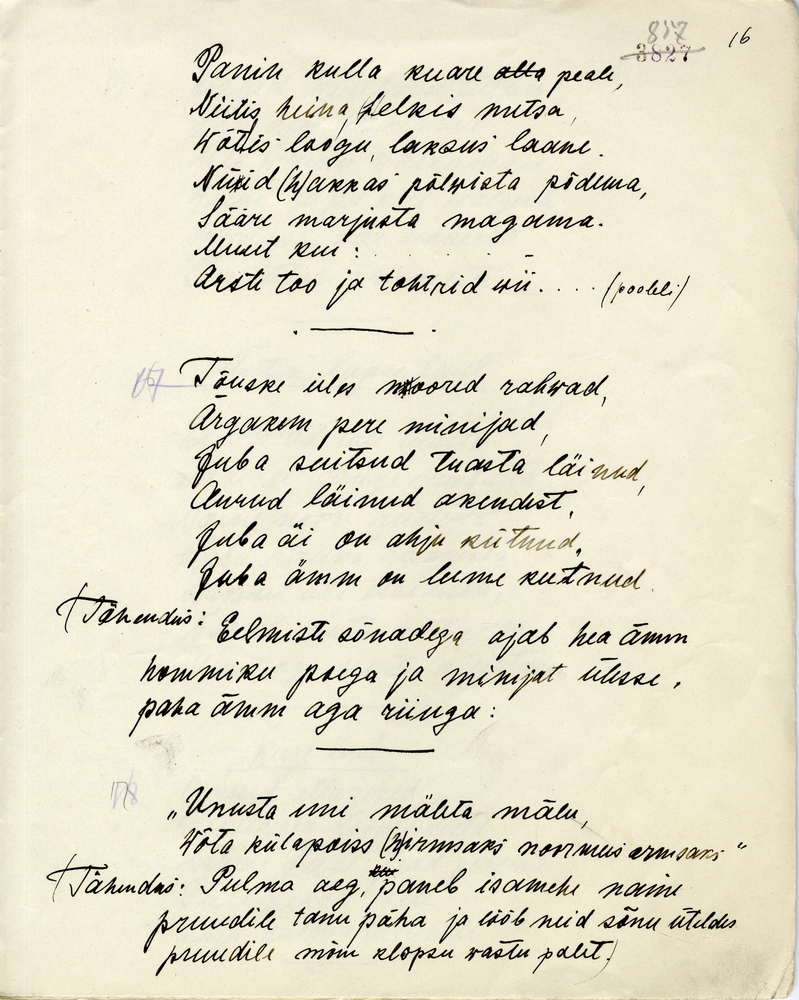 817
3827
16
Panin kulla kuare alla peale,
Niitis heina, selkis metsa,
Wõttis loogu, laksus laane.
Nüüid (h)akkas põlwista põdema,
Sääre marjusta magama.
Muut kui:
Arste too ja tohtrid wii.... (pooleli)
17 Tõuske üles noored rahwad,
Ärgakem pere minijad,
Juba suitsud tuasta läinud,
Aurud läinud akendest,
Juba äi on ahju kütnud,
Juba ämm on leeme keetnud.
(Tähendus: Eelmiste sõnadega ajab hea ämm
hommiku poega ja minijat ülesse,
paha ämm aga riiuga:
18
„Unusta uni mäleta mälu,
Wõta külapoiss (h)irmsaks noormees armsaks“
(Tähendus: Pulma aeg, paneb isamehe naine
pruudile tanu päha ja lööb neid sõnu üteldes
pruudile mõne klopsu wastu palet.)